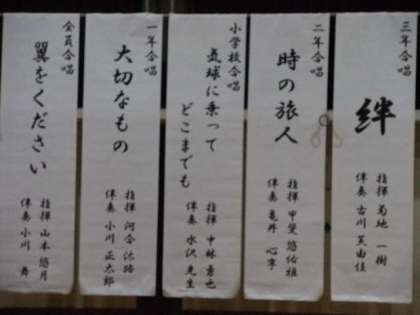 三年合唱
絆
指揮 菊地 一樹
伴奏 古川 芙由佳
二年合唱
時の旅人
指揮 甲斐 悠佑雅
伴奏 亀井 心寧
小学校合唱
気球に乗って
どこまでも
指揮 中林 勇也
伴奏 水沢 先生
一年合唱
大切なもの
指揮 河合
伴奏 小川 正太郎
全員合唱
翼をください
指揮 山本 悠月
伴奏 小川 舞